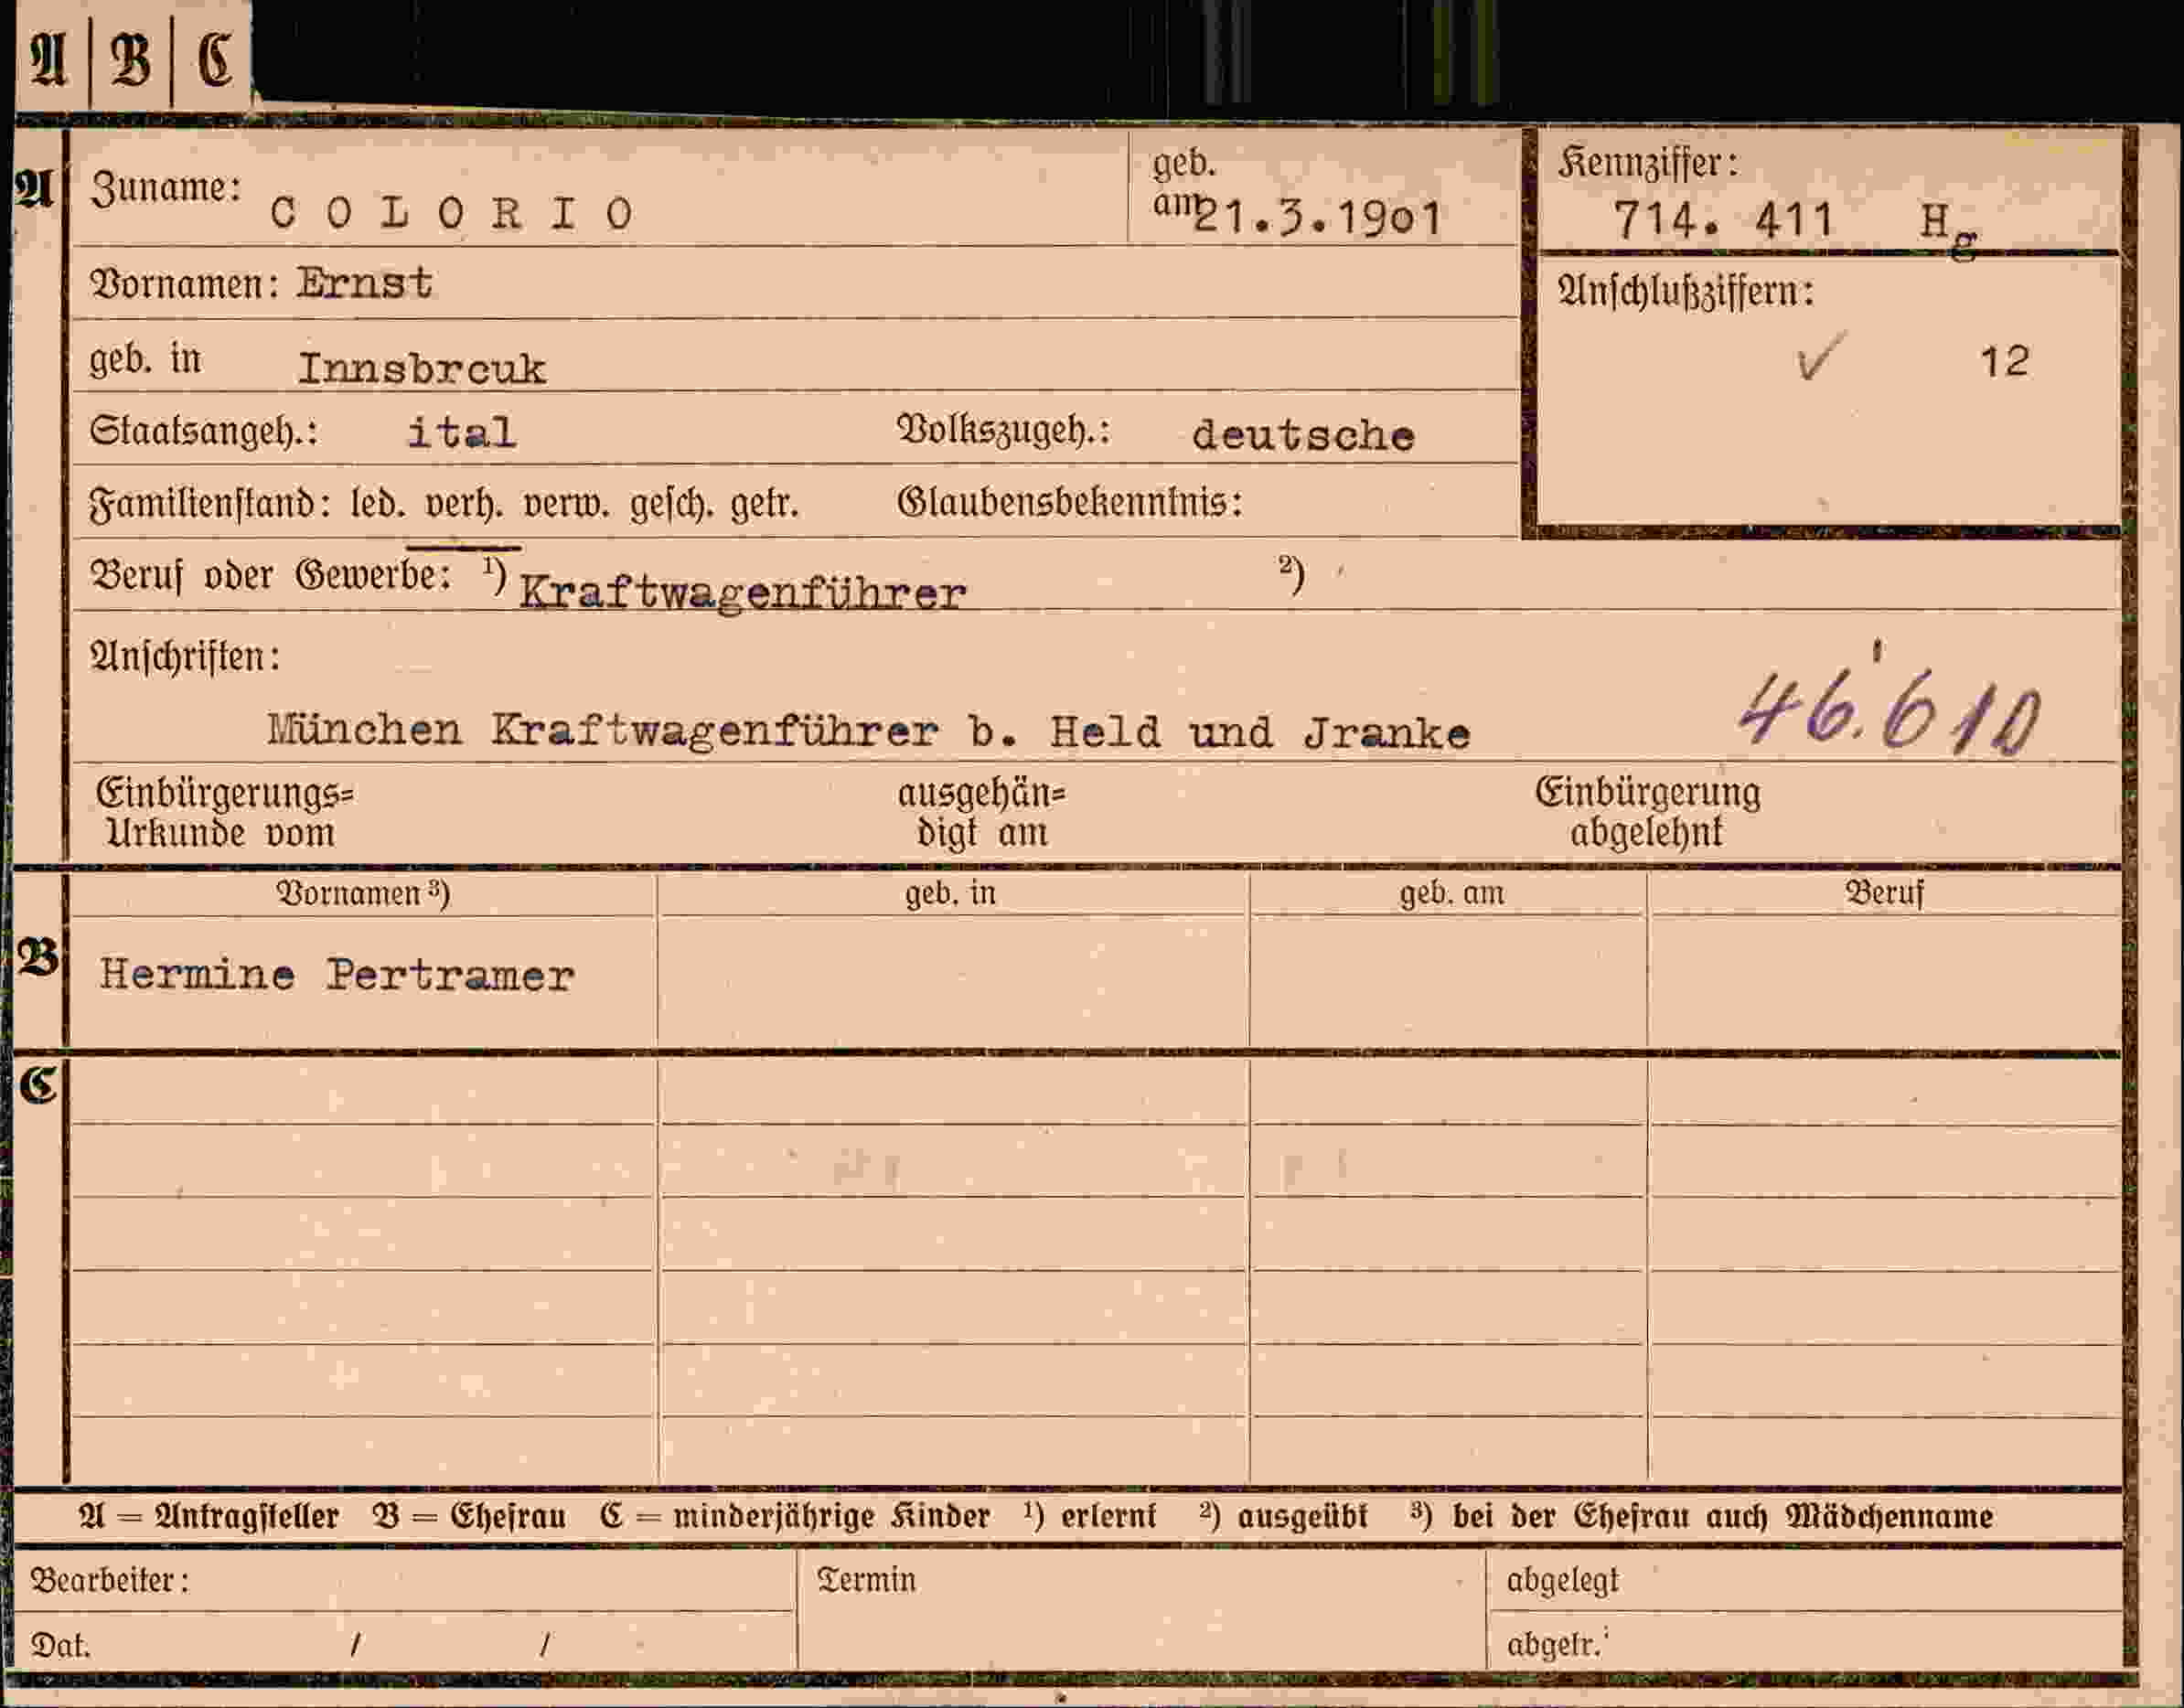 A | B | C
A Zuname: COLORIO geb. am 21.3.1901
Kennziffer: 714. 411 Hg
Vornamen: Ernst
Anschlußziffern: ✓ 12
geb. in Innsbrcuk
Staatsangeh.: ital Volkszugeh.: deutsche
Familienstand: led. verh. verw. gesch. getr. Glaubensbekenntnis:
Beruf oder Gewerbe: ¹) Kraftwagenführer ²)
Anschriften:
München Kraftwagenführer b. Held und Jranke 46.610
Einbürgerungs=
Urkunde vom
ausgehän=
digt am
Einbürgerung
abgelehnt
Vornamen ³) geb. in geb. am Beruf
B Hermine Pertramer
C
A = Antragsteller B = Ehefrau C = minderjährige Kinder ¹) erlernt ²) ausgeübt ³) bei der Ehefrau auch Mädchenname
Bearbeiter: Termin abgelegt
Dat. / / abgetr.: